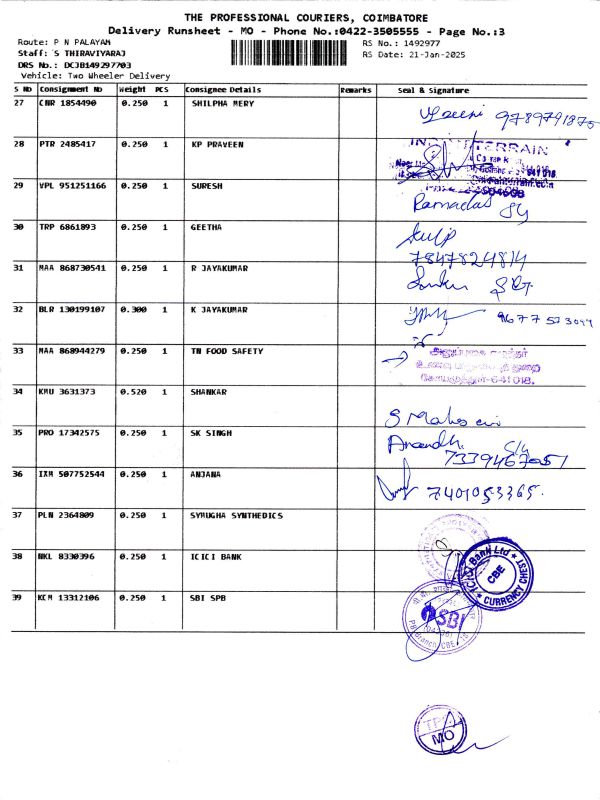 THE PROFESSIONAL COURIERS, COIMBATORE
Delivery Runsheet - MO - Phone No.:0422-3505555 - Page No.:3
Route: P N PALAYAM
RS No.: 1492977
Staff: S THIRAVIYARAJ
RS Date: 21-Jan-2025
DRS No.: DCJB149297703
Vehicle: Two Wheeler Delivery
S NO Consignment No Weight PCS Consignee Details Remarks Seal & Signature
27 CNR 1854490 0.250 1 SHILPHA MERY
9789791875
28 PTR 2485417 0.250 1 KP PRAVEEN
TERRAIN
29 VPL 951251166 0.250 1 SURESH
Ramadas
30 TRP 6861893 0.250 1 GEETHA
7847824814
31 MAA 868730541 0.250 1 R JAYAKUMAR
32 BLR 130199107 0.300 1 K JAYAKUMAR
33 MAA 868944279 0.250 1 TN FOOD SAFETY
641018.
34 KMU 3631373 0.520 1 SHANKAR
S Mahes
35 PRO 17342575 0.250 1 SK SINGH
Anandh.
7339467051
36 IXM 507752544 0.250 1 ANJANA
7401053365.
37 PLN 2364809 0.250 1 SYMUGHA SYNTHEDICS
38 NKL 8330396 0.250 1 ICICI BANK
ICICI Bank Ltd
CBE
CURRENCY CHEST
39 KCM 13312106 0.250 1 SBI SPB
SBI
MO